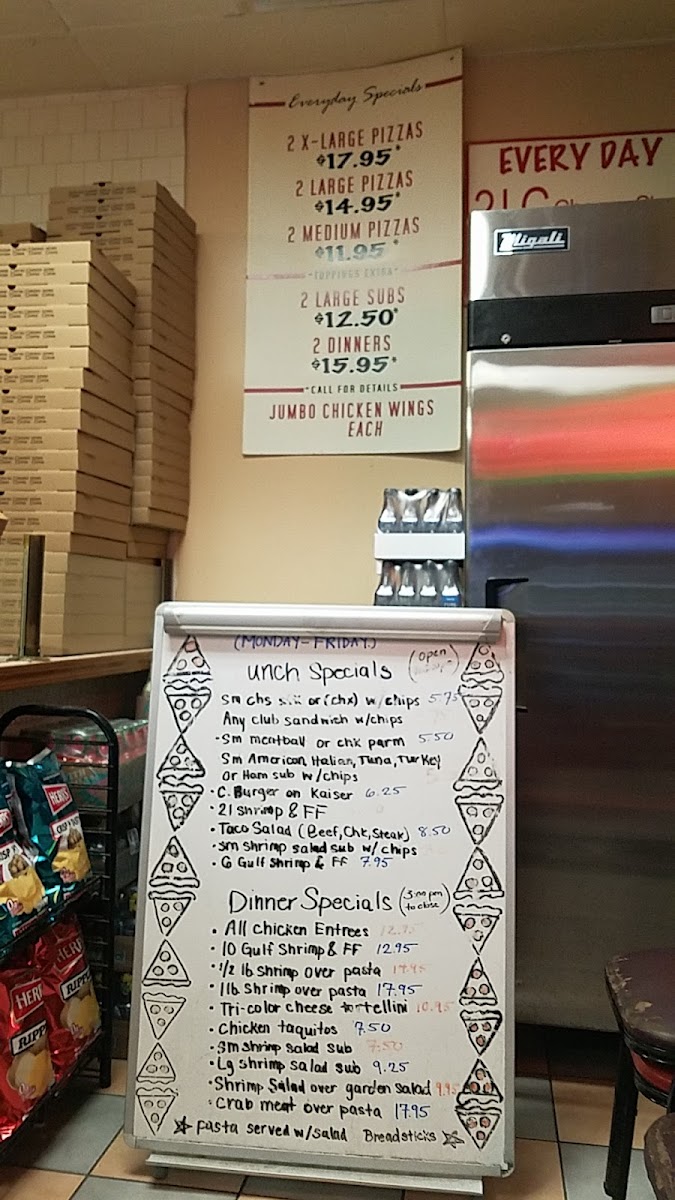 Everyday Specials
2 X-LARGE PIZZAS
$17.95*
2 LARGE PIZZAS
$14.95*
2 MEDIUM PIZZAS
$11.95*
*TOPPINGS EXTRA*
2 LARGE SUBS
$12.50*
2 DINNERS
$15.95*
*CALL FOR DETAILS
JUMBO CHICKEN WINGS
EACH
EVERY DAY
Migali
(MONDAY-FRIDAY)
unch Specials (open
Sm chs or (chx) w/chips 5.75
Any club sandwich w/chips
• Sm meatball or chk parm 5.50
Sm American, Italian, Tuna, Turkey
or Ham sub w/chips
• C. Burger on Kaiser 6.25
• 21 Shrimp & FF
• Taco Salad (Beef, Chk, Steak) 8.50
• Sm Shrimp salad sub w/chips
• 6 Gulf Shrimp & FF 7.95
Dinner Specials (3:00 pm to close)
• All Chicken Entrees 12.95
• 10 Gulf Shrimp & FF 12.95
• 1/2 lb Shrimp over pasta 14.95
• 1lb Shrimp over pasta 17.95
• Tri-color cheese tortellini 10.95
• Chicken taquitos 7.50
• Sm Shrimp salad sub 7.50
• Lg Shrimp salad sub 9.25
• Shrimp Salad over garden salad 9.95
• Crab meat over pasta 17.95
☆ Pasta served w/salad Breadsticks ☆
HERR'S
HERR
RIPP
HERR
RIPP